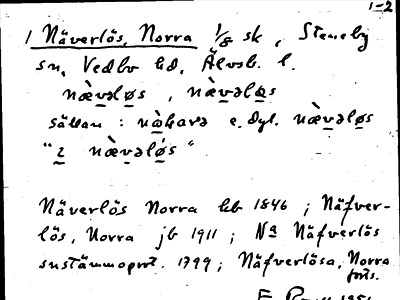 1-2
1 Näverlös, Norra 1/8 sk, Steneby
sn, Vedbo hd, Älvsb. l.
næ̀vəløs, næ̀vəlɵs
sällan : e. dyl. næ̀vəløs
"næ̀vəløs"
Näverlös Norra hb 1846 ; Näfver-
lös, Norra jb 1911 ; Na Näfverlös
1799 ; Näfverlösa, Norra
forts.